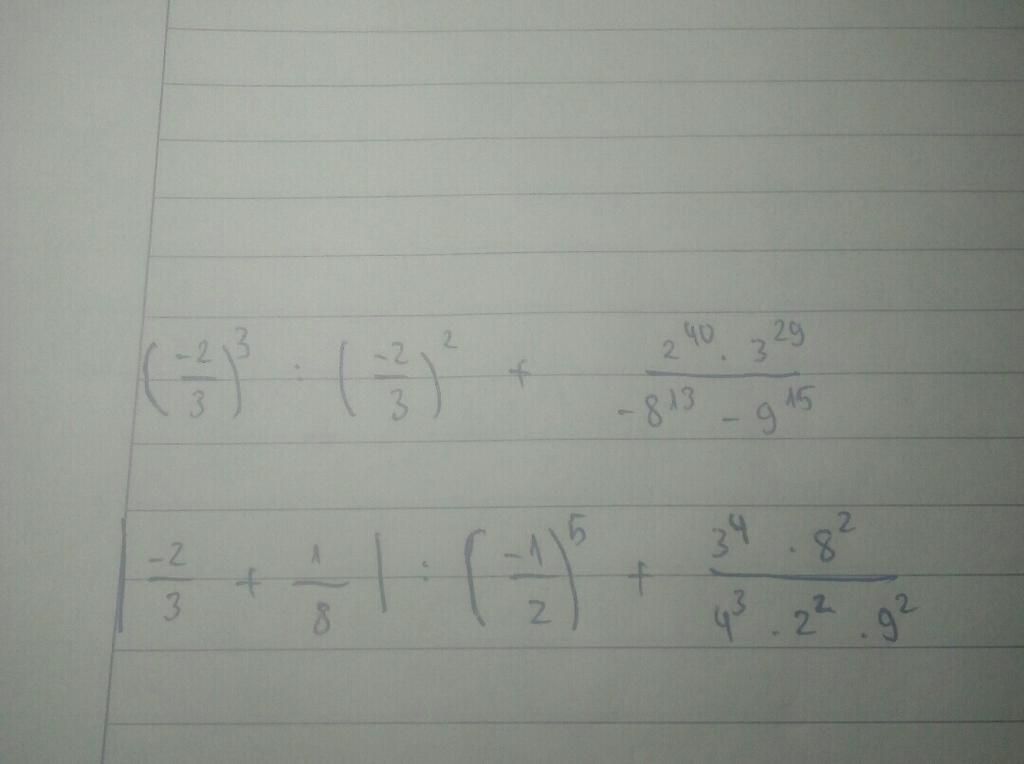 (-2/3)^3 : (-2/3)^2 + (2^40 · 3^29)/(-8^13 - 9^15)
|-2/3 + 1/8| : (-1/2)^5 + (3^4 · 8^2)/(4^3 · 2^2 · 9^2)